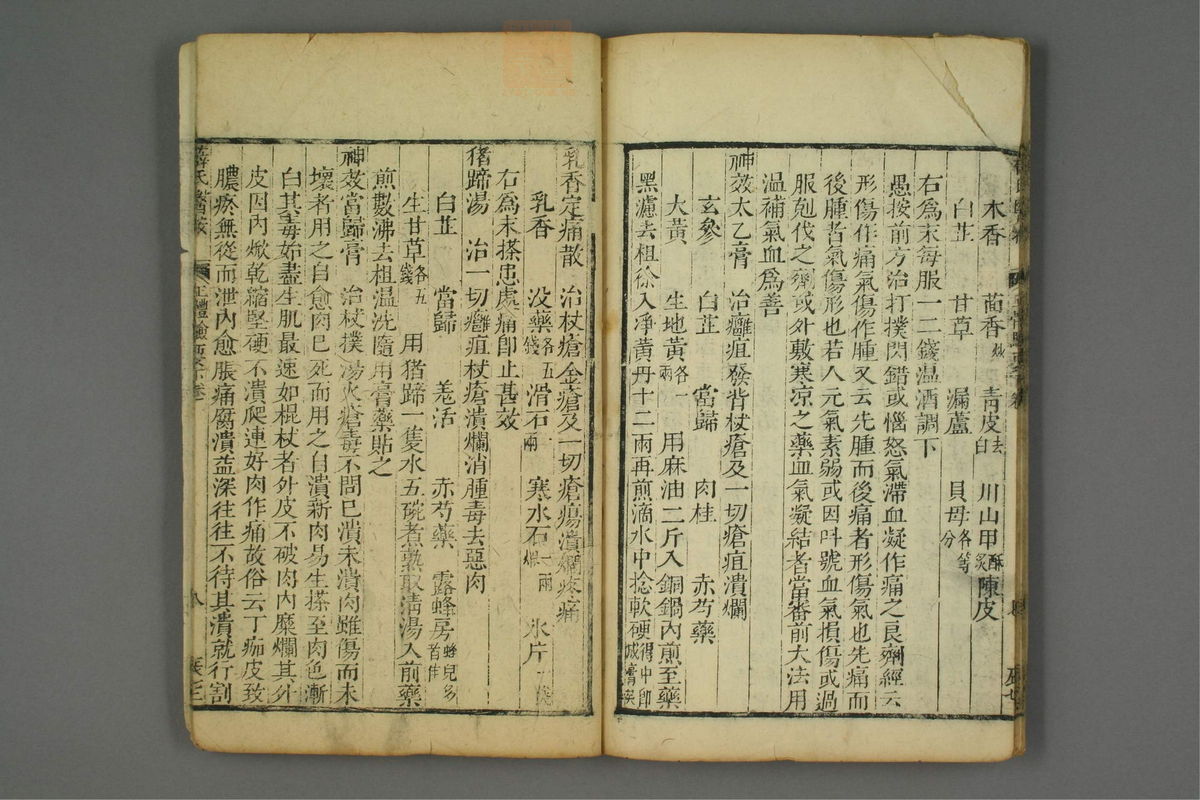 木香　茴香炒　青皮去白　川山甲酥炙　陳皮
白芷　甘草　漏蘆　貝母各等分
右為末每服一二錢温酒調下
愚按前方治打撲閃錯或惱怒氣滯血凝作痛之良劑經云
形傷作痛氣傷作腫又云先腫而後痛者形傷氣也先痛而
後腫者氣傷形也若人元氣素弱或因呌號血氣損傷或過
服剋伐之劑或外敷寒凉之藥血氣凝結者當審前大法用
温補氣血爲善
神效太乙膏　治癰疽發背杖瘡及一切瘡疽潰爛
玄參　白芷　當歸　肉桂　赤芍藥
大黃　生地黃各一兩　用麻油二斤入銅鍋內煎至藥
黑濾去柤徐入净黃丹十二兩再煎滴水中捻軟硬得中即成膏矣
乳香定痛散　治杖瘡金瘡及一切瘡瘍潰爛疼痛
乳香　没藥各五錢　滑石一兩　寒水石煅一兩　氷片一錢
右爲末搽患處痛即止甚效
猪蹄湯　治一切癰疽杖瘡潰爛消腫毒去惡肉
白芷　當歸　羗活　赤芍藥　露蜂房蜂兒多者佳
生甘草各五錢　用猪蹄一隻水五碗煮熟取清湯入前藥
煎數沸去柤温洗隨用膏藥貼之
神效當歸膏　治杖撲湯火瘡毒不問巳潰未潰肉雖傷而未
壞者用之自愈肉巳死而用之自潰新肉易生搽至肉色漸
白其毒始盡生肌最速如棍杖者外皮不破肉內糜爛其外
皮因內焮乾縮堅硬不潰爬連好肉作痛故俗云丁痂皮致
膿瘀無從而泄內愈脹痛腐潰益深往往不待其潰就行割
薛氏醫按　正體類要下卷　八